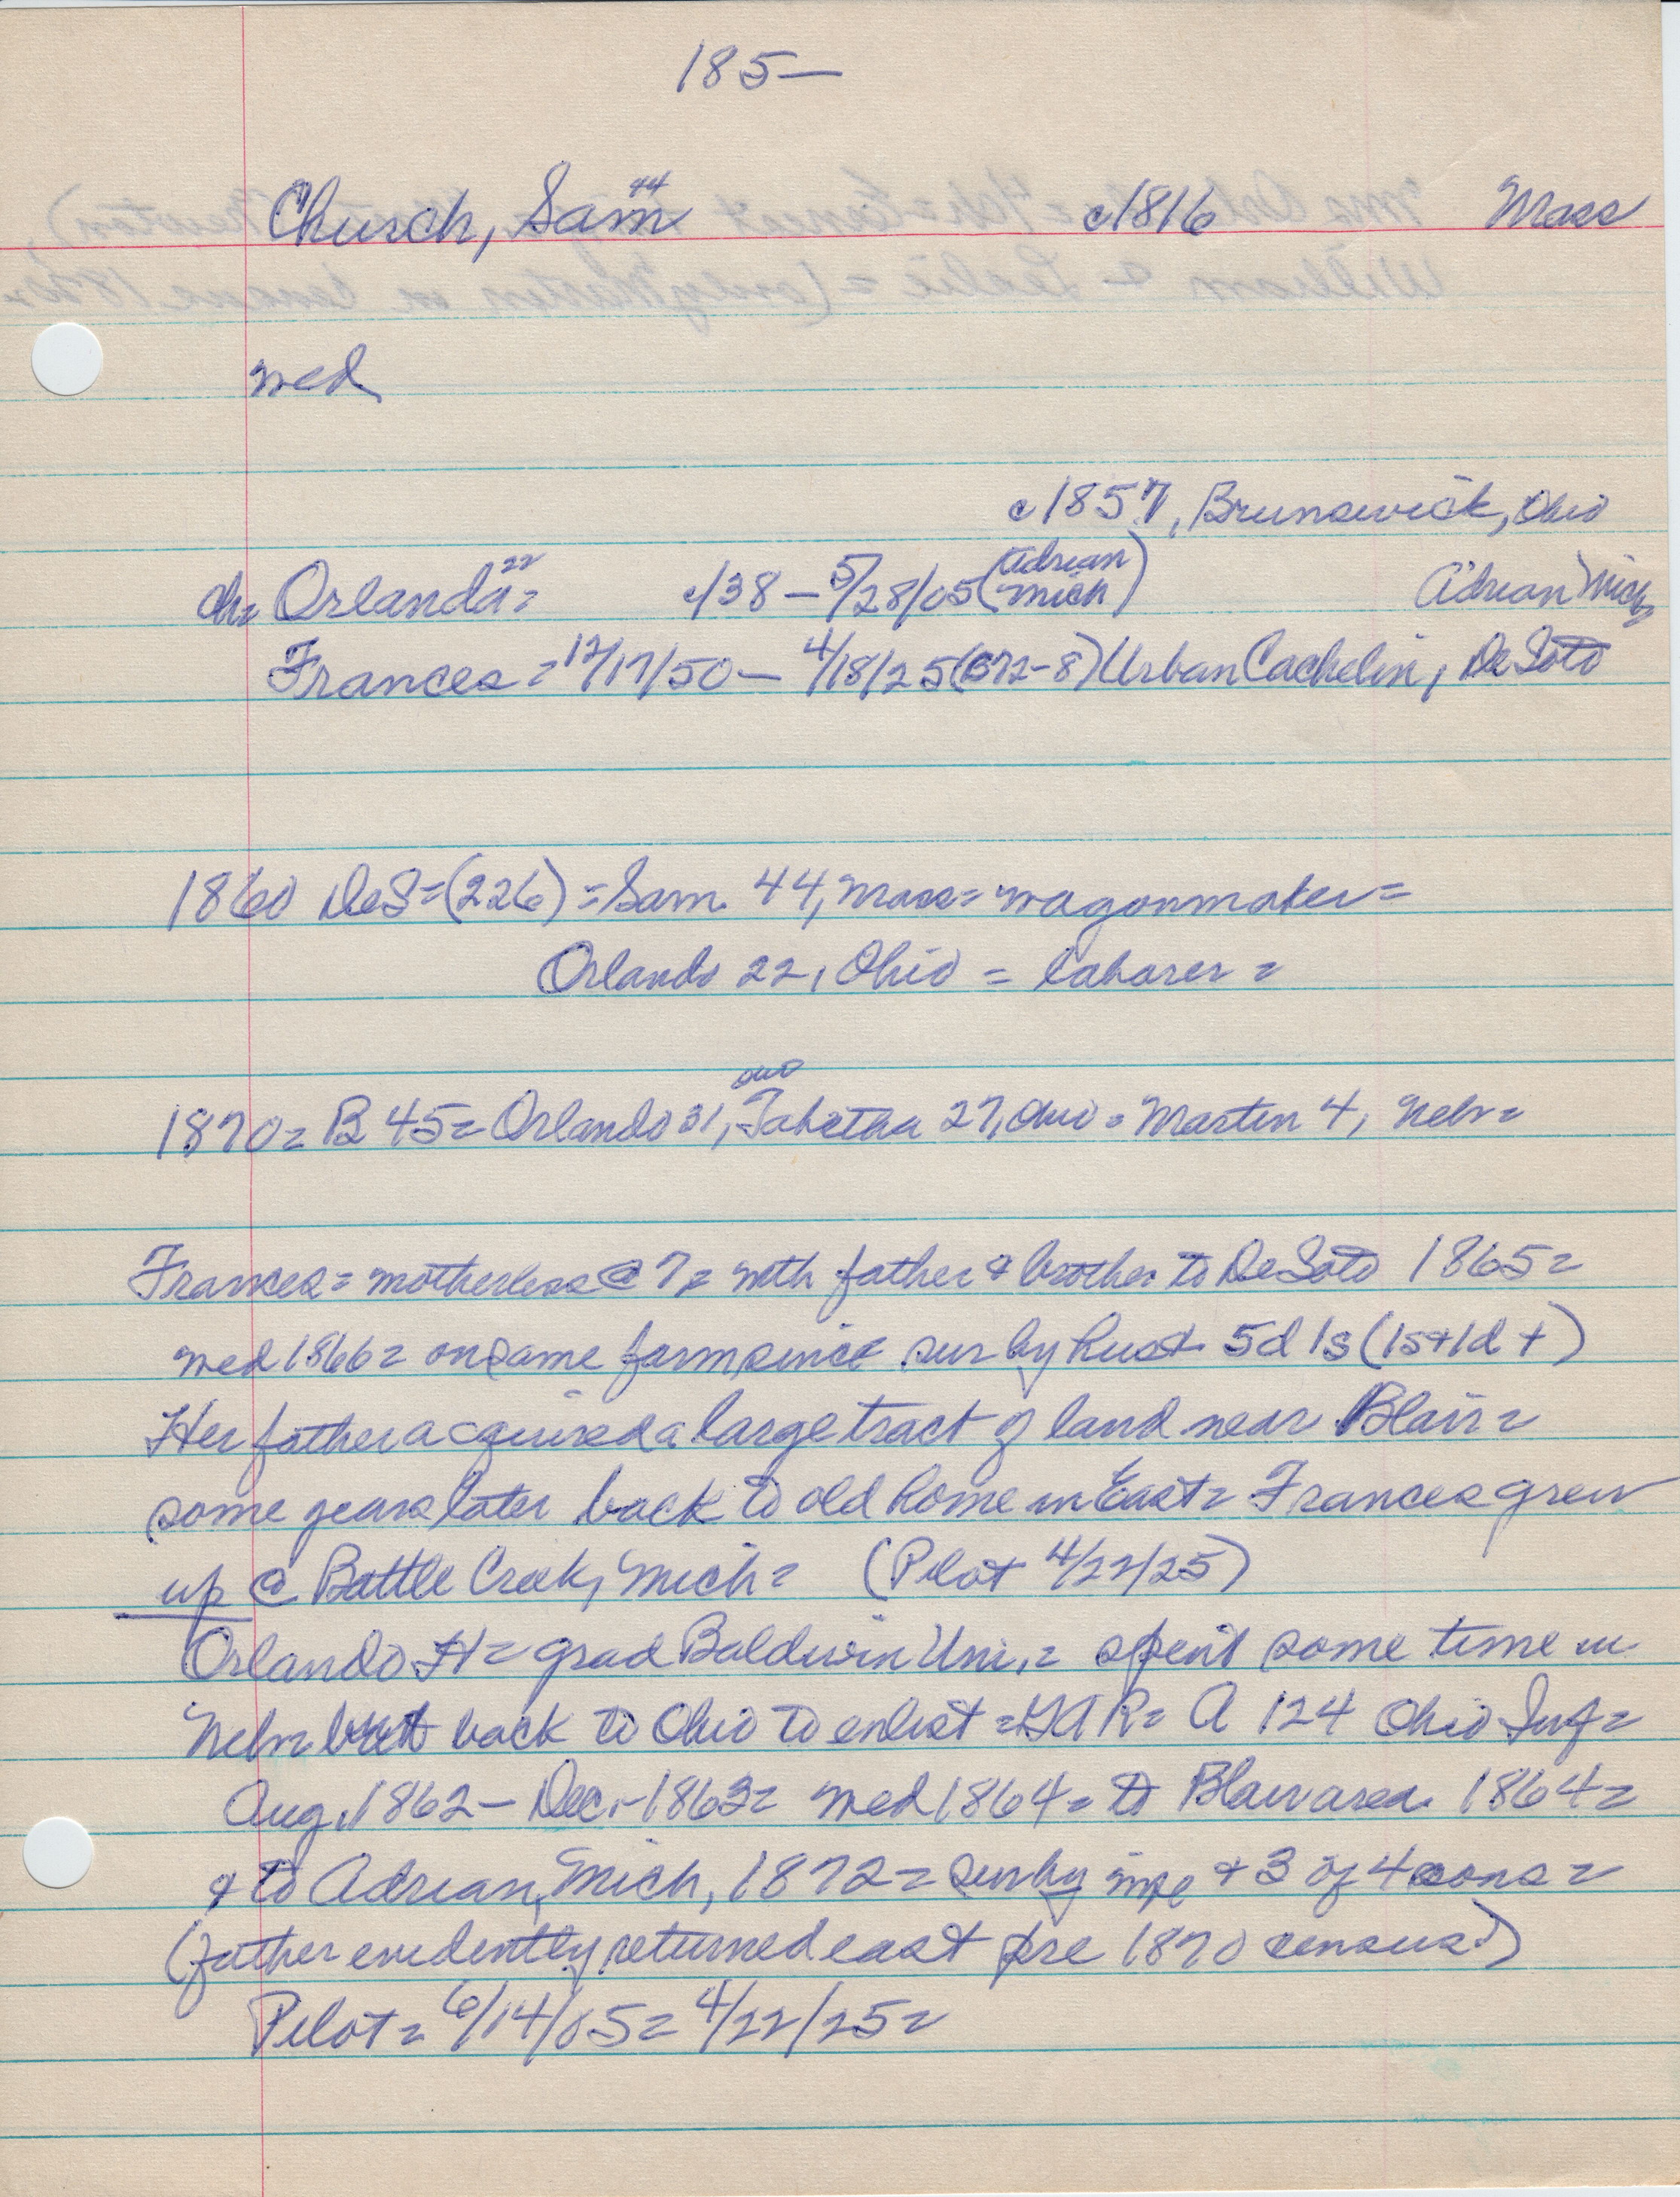 185-
Church, Sam 44 c1816 Mass
med
c1857, Brunswick, Ohio
ch= Orlando 22= c/38 - 5/28/05 (Adrian Mich) Adrian, Mich
Frances = 12/17/50 - 4/18/25 (872-8) Urban Cachelin, De Soto
1860 DeS = (226) = Sam. 44, Mass = wagonmaker =
Orlando 22, Ohio = laborer =
1870 = B 45 = Orlando 31, Ohio Tabetha 27, Ohio = Martin 4, Nebr =
Frances = motherless @ 7 = with father & brother to DeSoto 1865 =
med 1866 = on same farm since sur by husb. 5d 1s (1s+1d +)
Her father acquired a large tract of land near Blair =
some years later back to old home in East = Frances grew
up @ Battle Creek, Mich = (Pilot 4/22/25)
Orlando H = grad Baldwin Uni, = spent some time in
Nebr but back to Ohio to enlist = GAR = A 124 Ohio Inf =
Aug, 1862 - Dec, -1863 = med 1864 = to Blair area. 1864 =
& to Adrian, Mich, 1872 = sur by & 3 of 4 sons =
(father evidently returned east pre 1870 census?)
Pilot = 6/14/05 = 4/22/25 =